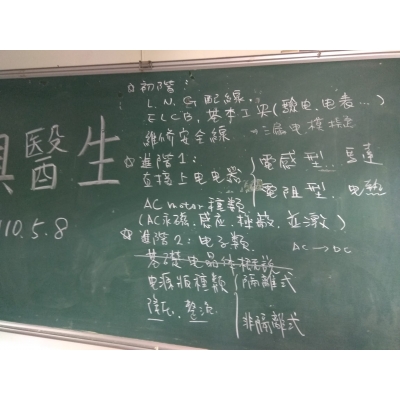 與醫生
110.5.8
☆初階：
L.N.G 配線.
ELCB. 基本工具(驗电.电表…)
維修安全線
☆進階1：
直接上电电器
電感型. 馬達
電阻型. 电熱
AC motor 種類
(AC永磁.感应.
☆進階2：电子類.
AC→DC
基礎电晶体概說
电源版種類
隔離式
降压.整流
非隔離式